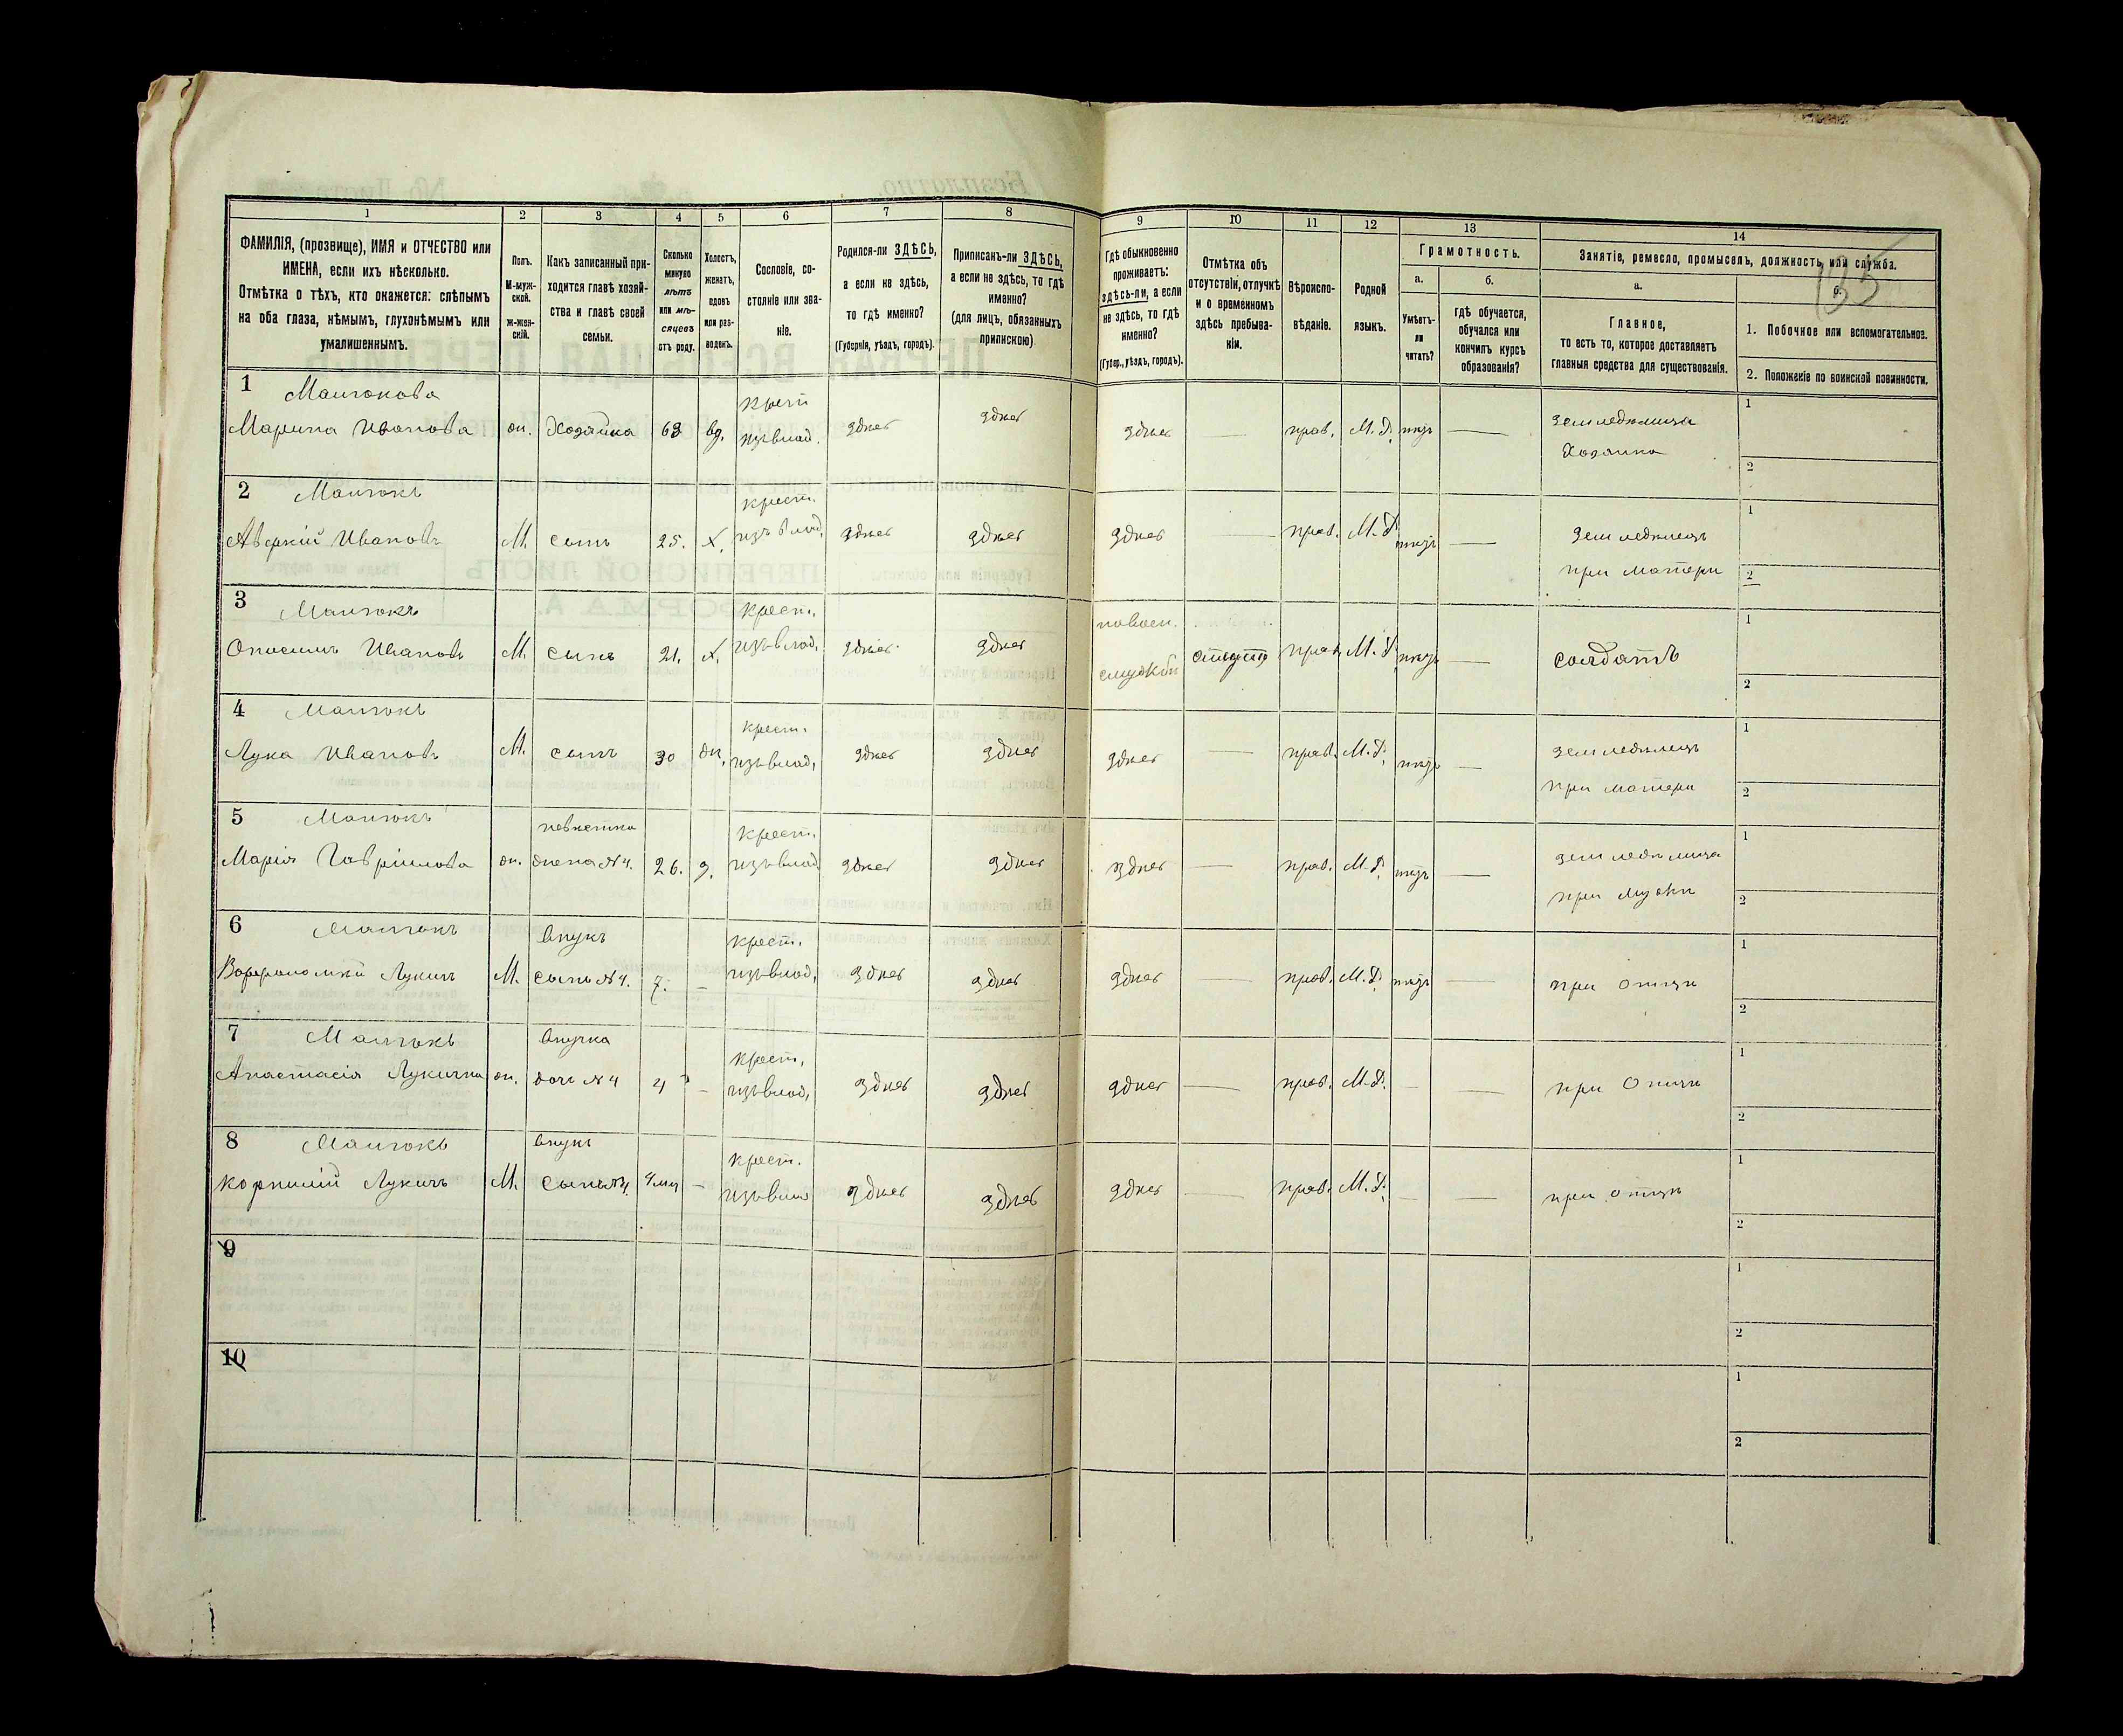 135
1 2 3 4 5 6 7 8 9 10 11 12 13 14
ФАМИЛІЯ, (прозвище), ИМЯ и ОТЧЕСТВО или
ИМЕНА, если ихъ нѣсколько.
Отмѣтка о тѣхъ, кто окажется: слѣпымъ
на оба глаза, нѣмымъ, глухонѣмымъ или
умалишеннымъ.
Полъ.
М-муж-
ской.
ж-жен-
скій.
Какъ записанный при-
ходится главѣ хозяй-
ства и главѣ своей
семьи.
Сколько
минуло
лѣтъ
или мѣ-
сяцевъ
отъ роду.
Холостъ,
женатъ,
вдовъ
или раз-
веденъ.
Сословіе, со-
стояніе или зва-
ніе.
Родился-ли ЗДѢСЬ,
а если не здѣсь,
то гдѣ именно?
(Губернія, уѣздъ, городъ).
Приписанъ-ли ЗДѢСЬ,
а если не здѣсь, то гдѣ
именно?
(для лицъ, обязанныхъ
припискою)
Гдѣ обыкновенно
проживаетъ:
здѣсь-ли, а если
не здѣсь, то гдѣ
именно?
(Губер., уѣздъ, городъ).
Отмѣтка объ
отсутствіи, отлучкѣ
и о временномъ
здѣсь пребыва-
ніи.
Вѣроиспо-
вѣданіе.
Родной
языкъ.
Грамотность.
а.
Умѣетъ-
ли
читать?
б.
гдѣ обучается,
обучался или
кончилъ курсъ
образованія?
Занятіе, ремесло, промыселъ, должность или служба.
а.
Главное,
то есть то, которое доставляетъ
главныя средства для существованія.
б.
1. Побочное или вспомогательное.
2. Положеніе по воинской повинности.
1
Марина Иванова ж. Хозяйка 63 вд. крест изъ влад. здѣсь здѣсь здѣсь — прав. М. Р. нѣтъ — земледѣлица
Хозяйка
1
2
2
Аверкій Ивановъ М. сынъ 25. х. крест. изъ влад. здѣсь здѣсь здѣсь — прав. М. Р. нѣтъ — земледѣлецъ
при матери
1
2
3
Онисимъ Ивановъ М. сынъ 21. х. крест. изъ влад. здѣсь здѣсь на воен. службѣ прав. М. Р. нѣтъ — солдатъ
1
2
4
Лука Ивановъ М. сынъ 30 ж. крест. изъ влад. здѣсь здѣсь здѣсь — прав. М. Р. нѣтъ — земледѣлецъ
при матери
1
2
5
невѣстка
Марія Гавріилова ж. жена №4. 26. з. крест. изъ влад здѣсь здѣсь здѣсь — прав. М. Р. нѣтъ — земледѣлица
при мужѣ
1
2
6
внукъ
Варфоломѣй Лукичъ М. сынъ №4. 7. — крест. изъ влад. здѣсь здѣсь здѣсь — прав. М. Р. нѣтъ — при отцѣ
1
2
7
внучка
Анастасія Лукична ж. дочь №4 4 — крест. изъ влад. здѣсь здѣсь здѣсь — прав. М. Р. — — при отцѣ
1
2
8
внукъ
Корнилій Лукичъ М. сынъ №4. — крест. изъ влад здѣсь здѣсь здѣсь — прав. М. Р. — — при отцѣ
1
2
9
1
2
10
1
2